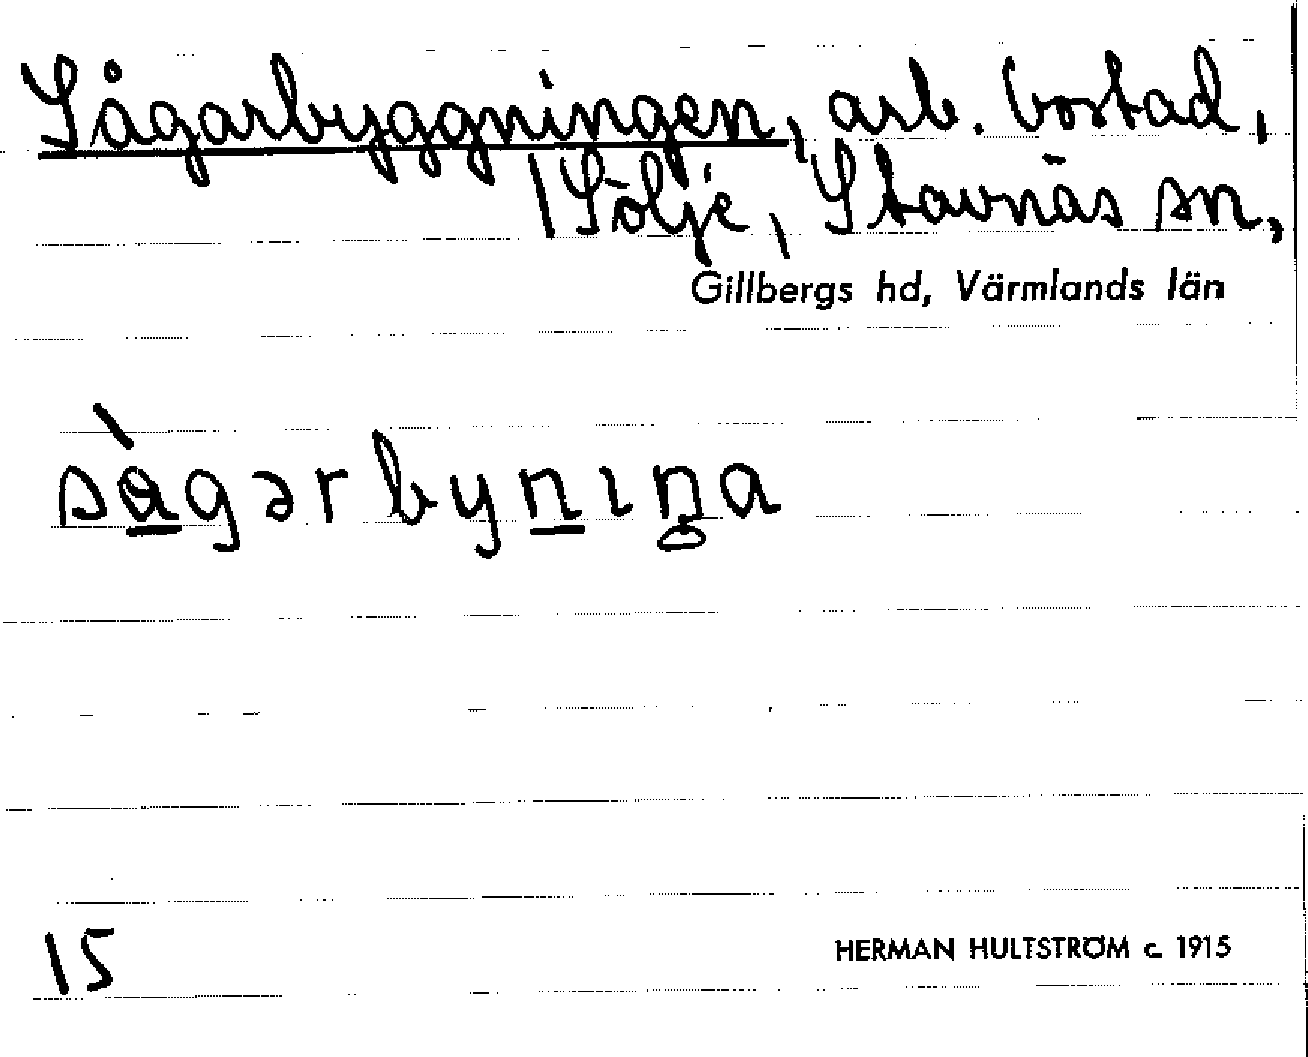 Sågarbyggningen, arb. bostad,
Sölje, Stavnäs sn,
Gillbergs hd, Värmlands län
sàgərbynıŋa
15
HERMAN HULTSTRÖM c. 1915